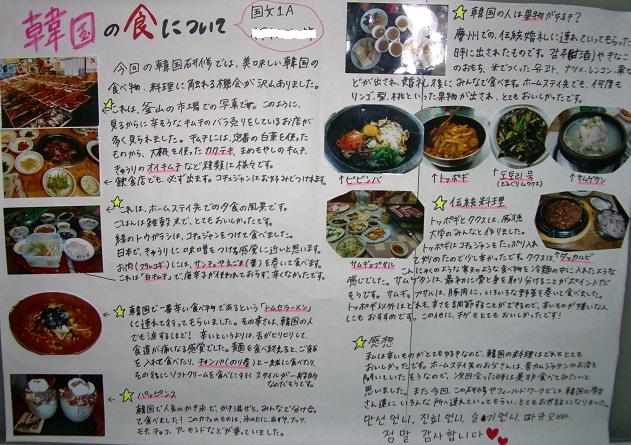 韓国の食について
国文1A
今回の韓国研修では、美味しい韓国の
食べ物、料理に触れる機会が沢山ありました。
これは、釜山の市場での写真です。このように、
見るからに辛そうなキムチのバラ売りをしているお店が
多く見られました。キムチには、定番の白菜を使っ
たものから、大根を使ったカクテキ、まめもやしのキムチ、
きゅうりのオイキムチなど種類は様々です。
飲食店でも、必ず出ます。コチュジャンはお好みでどうぞ
これは、ホームステイ先での夕食の風景です。
ごはんは雑穀米で、とてもおいしかったです。
緑のトウガラシは、コチュジャンをつけて食べました。
日本で、きゅうりに味噌をつける感覚に近いと思います。
お肉(プルコギ)には、サンチュやえごま(葉)を巻いて食べます。
これは「白キムチ」で、唐辛子が使われておらず、辛くなかったです。
韓国で一番辛い食べ物であるという「トムセラーメン」
に連れて行ってもらいました。その辛さは、韓国の人
でも涙するほど!辛いというよりは、舌がヒリヒリして、
食道が痛くなる感覚でした。麺を食べ終えると、ご飯
を入れて食べたり、キムパ(のり巻)と一緒に食べたり、
その後にソフトクリームを食べに行くスタイルが一般的
なのだそうです。
パッピンス
韓国で人気のかき氷で、かき混ぜて、みんなで分け合っ
て食べました!このカフェのものは、氷の上に、あずき、ナッツ、
モチ、チョコ、アーモンドなどが乗っていました。
韓国の人は果物が好き?
慶州での、伝統婚礼に連れていってもらった
時に出されたものです。甘酒(酒)やきなこ
のおもち、米でつくったユコア、ナツメ、レンコン、栗な
どが出され、婚礼後にみんなで食べます。ホームステイ先でも、何度も
リンゴ、梨、桃といった果物が出され、とてもおいしかったです。
↑ビビンバ
↑トッポギ
↑도토리묵
(どんぐりムクス)
↑サムゲタン
サムギョプサル
↑タッカルビ
伝統料理
トッポギとククスは、
大学のみなさんと作りました。
トッポギはコチュジャンをたっぷり入れ
て炒めたので少し辛かったです。ククスは、
こんにゃくのような寒天のような食べ物を冷麺の中に入れたような
感じでした。サムゲタンは、最初に骨と身を取り分けることがポイントだ
そうです。サムギョプサルは、豚肉にいろいろな野菜を巻いて食べました。
トッポギ以外はどれも、辛さを調節することができるので、辛いものが嫌いな人
にもおすすめです。この他にも、チヂミもとてもおいしかったです!
感想
私は辛いものがとても好きなので、韓国の料理はどれもとても
おいしかったです。ホームステイ先のお母さんは、昔カムジャタンのお店を
開いていたそうなので、次回会った時は是非食べてみたいと
思いました。また、今回、この研修やフィールドワークでは、韓国の学生
さん達にいろんな所へ連れていってもらい、とてもお世話になりました。
정말 감사합니다